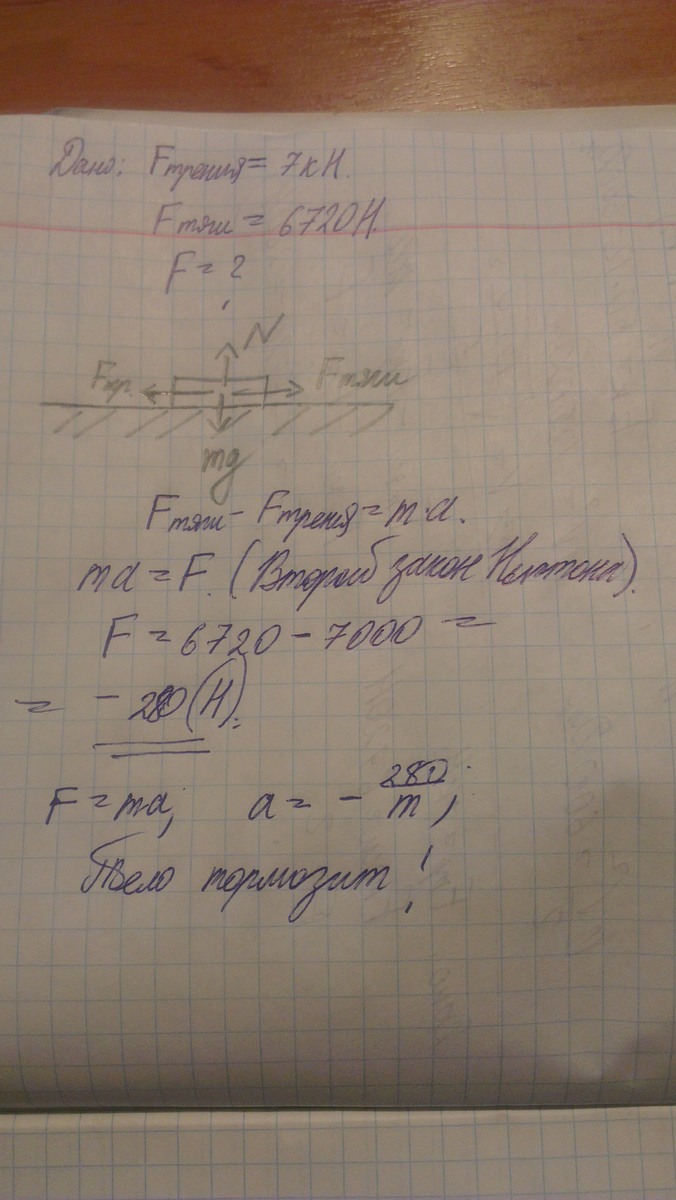 Дано: Fтрения = 7кН.
Fтяги = 6720Н.
F = ?
N
Fтр. Fтяги
mg
Fтяги - Fтрения = m·a.
ma = F. (Второй закон Ньютона).
F = 6720 - 7000 =
= - 280 (Н).
F = ma; a = - 280/m;
Тело тормозит!